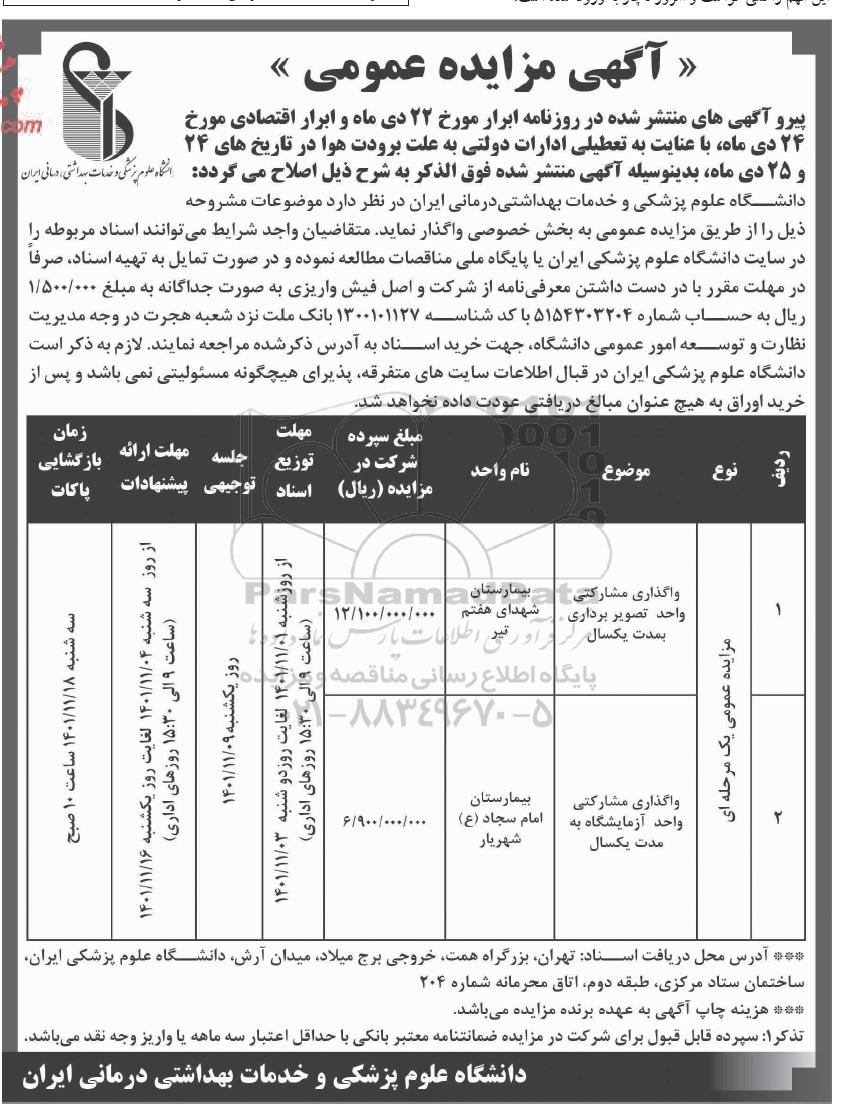 « آگهی مزایده عمومی »
دانشگاه علوم پزشکی و خدمات بهداشتی، درمانی ایران
پیرو آگهی های منتشر شده در روزنامه ابرار مورخ ۲۲ دی ماه و ابرار اقتصادی مورخ
۲۴ دی ماه، با عنایت به تعطیلی ادارات دولتی به علت برودت هوا در تاریخ های ۲۴
و ۲۵ دی ماه، بدینوسیله آگهی منتشر شده فوق الذکر به شرح ذیل اصلاح می گردد:
دانشگاه علوم پزشکی و خدمات بهداشتی‌درمانی ایران در نظر دارد موضوعات مشروحه
ذیل را از طریق مزایده عمومی به بخش خصوصی واگذار نماید. متقاضیان واجد شرایط می‌توانند اسناد مربوطه را
در سایت دانشگاه علوم پزشکی ایران یا پایگاه ملی مناقصات مطالعه نموده و در صورت تمایل به تهیه اسناد، صرفاً
در مهلت مقرر با در دست داشتن معرفی‌نامه از شرکت و اصل فیش واریزی به صورت جداگانه به مبلغ ۱/۵۰۰/۰۰۰
ریال به حساب شماره ۵۱۵۴۳۰۳۲۰۴ با کد شناسه ۱۳۰۰۱۰۱۱۲۷ بانک ملت نزد شعبه هجرت در وجه مدیریت
نظارت و توسعه امور عمومی دانشگاه، جهت خرید اسناد به آدرس ذکرشده مراجعه نمایند. لازم به ذکر است
دانشگاه علوم پزشکی ایران در قبال اطلاعات سایت های متفرقه، پذیرای هیچگونه مسئولیتی نمی باشد و پس از
خرید اوراق به هیچ عنوان مبالغ دریافتی عودت داده نخواهد شد.
ردیف
نوع
موضوع
نام واحد
مبلغ سپرده
شرکت در
مزایده (ریال)
مهلت
توزیع
اسناد
جلسه
توجیهی
مهلت ارائه
پیشنهادات
زمان
بازگشایی
پاکات
۱
مزایده عمومی یک مرحله ای
واگذاری مشارکتی
واحد تصویر برداری
بمدت یکسال
بیمارستان
شهدای هفتم
تیر
۱۲/۱۰۰/۰۰۰/۰۰۰
از روزشنبه ۱۴۰۱/۱۱/۰۱ لغایت روزدو شنبه ۱۴۰۱/۱۱/۰۳
(ساعت ۹ الی ۱۵:۳۰ روزهای اداری)
روز یکشنبه۱۴۰۱/۱۱/۰۹
از روز سه شنبه ۱۴۰۱/۱۱/۰۴ لغایت روز یکشنبه ۱۴۰۱/۱۱/۱۶
(ساعت ۹ الی ۱۵:۳۰ روزهای اداری)
سه شنبه ۱۴۰۱/۱۱/۱۸ ساعت ۱۰ صبح
۲
واگذاری مشارکتی
واحد آزمایشگاه به
مدت یکسال
بیمارستان
امام سجاد (ع)
شهریار
۶/۹۰۰/۰۰۰/۰۰۰
ParsNamadData
مرکز فرآوری اطلاعات پارس نماد داده ها
پایگاه اطلاع رسانی مناقصه و مزایده
۰۲۱-۸۸۳۴۹۶۷۰-۵
*** آدرس محل دریافت اسناد: تهران، بزرگراه همت، خروجی برج میلاد، میدان آرش، دانشگاه علوم پزشکی ایران،
ساختمان ستاد مرکزی، طبقه دوم، اتاق محرمانه شماره ۲۰۴
*** هزینه چاپ آگهی به عهده برنده مزایده می‌باشد.
تذکر۱: سپرده قابل قبول برای شرکت در مزایده ضمانتنامه معتبر بانکی با حداقل اعتبار سه ماهه یا واریز وجه نقد می‌باشد.
دانشگاه علوم پزشکی و خدمات بهداشتی درمانی ایران